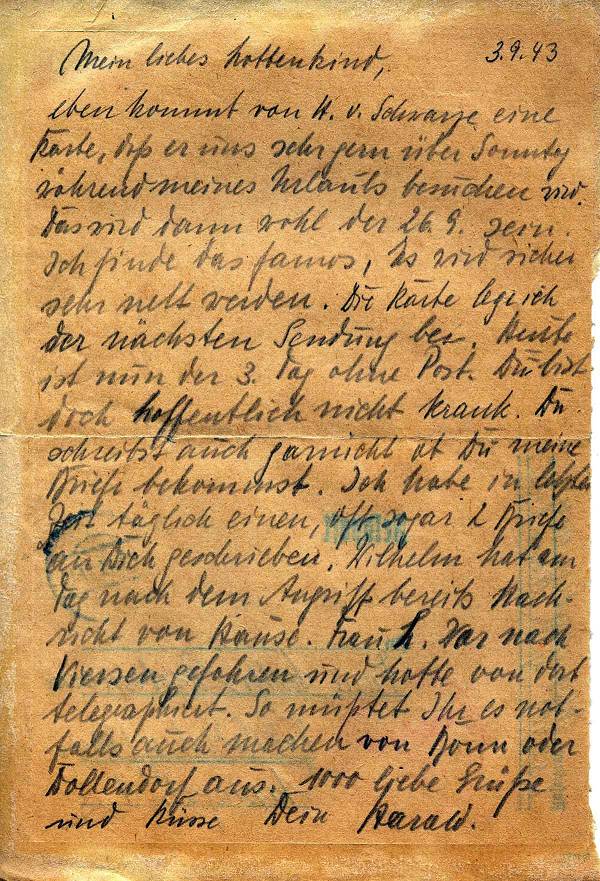 3.9.43
Mein liebes Hottenkind,
eben kommt von H. v. Schwarze eine
Karte, daß er uns sehr gern über Sonntag
während meines Urlaubs besuchen wird.
Das wird dann wohl der 26.9. sein.
Ich finde das famos, es wird sicher
sehr nett werden. Die Karte lege ich
der nächsten Sendung bei. Heute
ist nun der 3. Tag ohne Post. Du bist
doch hoffentlich nicht krank. Du
schreibst auch garnicht ob Du meine
Briefe bekommst. Ich habe in letzter
Zeit täglich einen, oft sogar 2 Briefe
an Dich geschrieben. Wilhelm hat am
Tag nach dem Angriff bereits Nach-
richt von Hause. Frau L. war nach
Viersen gefahren und hatte von dort
telegraphiert. So müßtet Ihr es not-
falls auch machen von Bonn oder
Dollendorf aus. 1000 liebe Grüße
und Küsse Dein Harald.